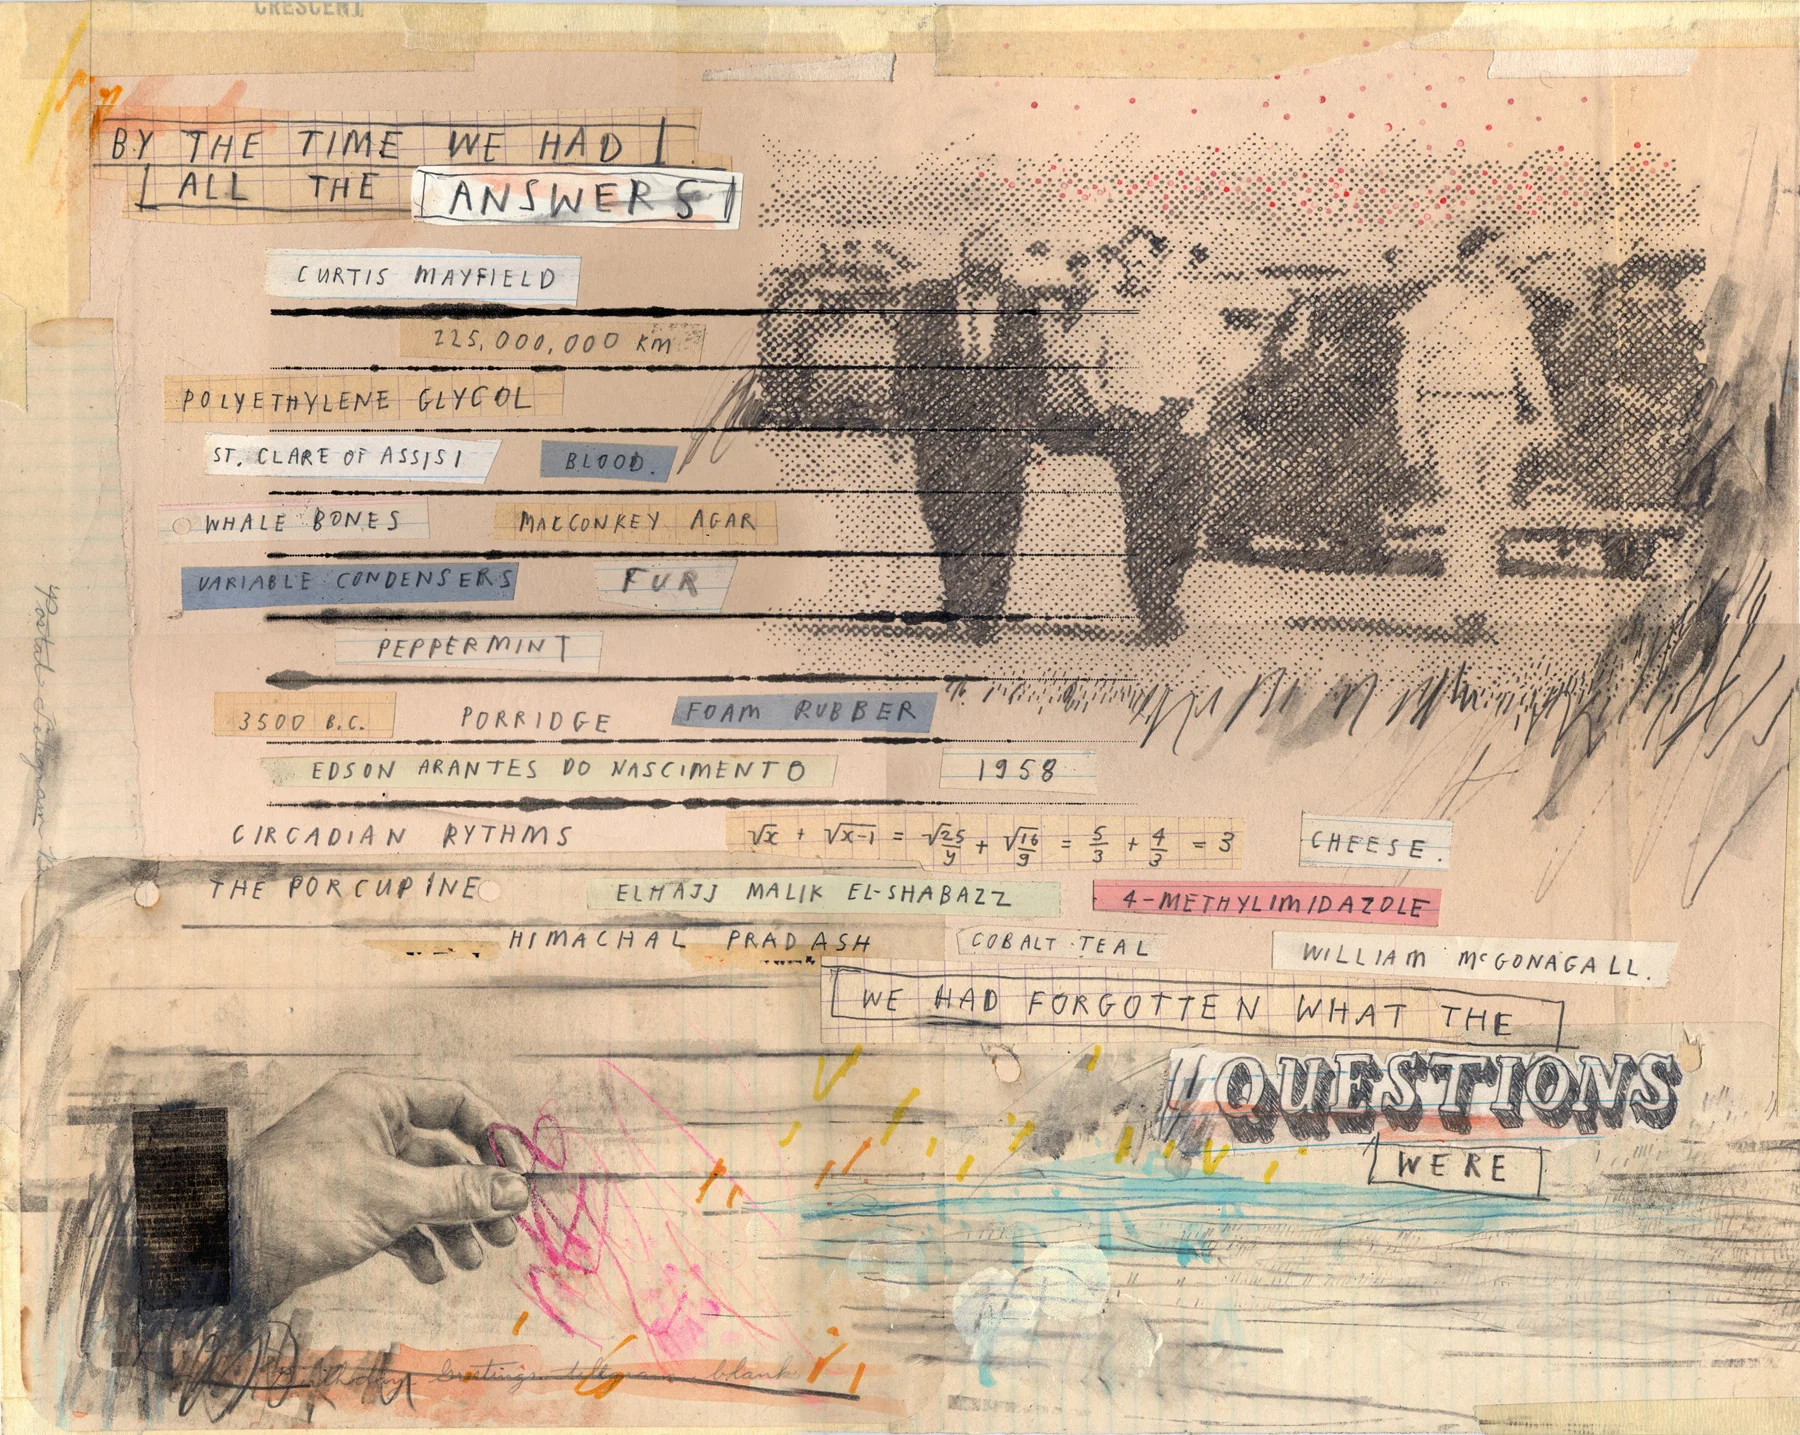 CRESCENT
BY THE TIME WE HAD
ALL THE ANSWERS
CURTIS MAYFIELD
225,000,000 KM
POLYETHYLENE GLYCOL
ST. CLARE OF ASSISI BLOOD.
WHALE BONES MACCONKEY AGAR
VARIABLE CONDENSERS FUR
PEPPERMINT
3500 B.C. PORRIDGE FOAM RUBBER
EDSON ARANTES DO NASCIMENTO 1958
CIRCADIAN RYTHMS √x + √x-1 = √25/9 + √16/9 = 5/3 + 4/3 = 3 CHEESE.
THE PORCUPINE ELHAJJ MALIK EL-SHABAZZ 4-METHYLIMIDAZOLE
HIMACHAL PRADASH COBALT TEAL WILLIAM McGONAGALL.
WE HAD FORGOTTEN WHAT THE
QUESTIONS
WERE
Postal Telegram
Birthday Greetings telegram blank